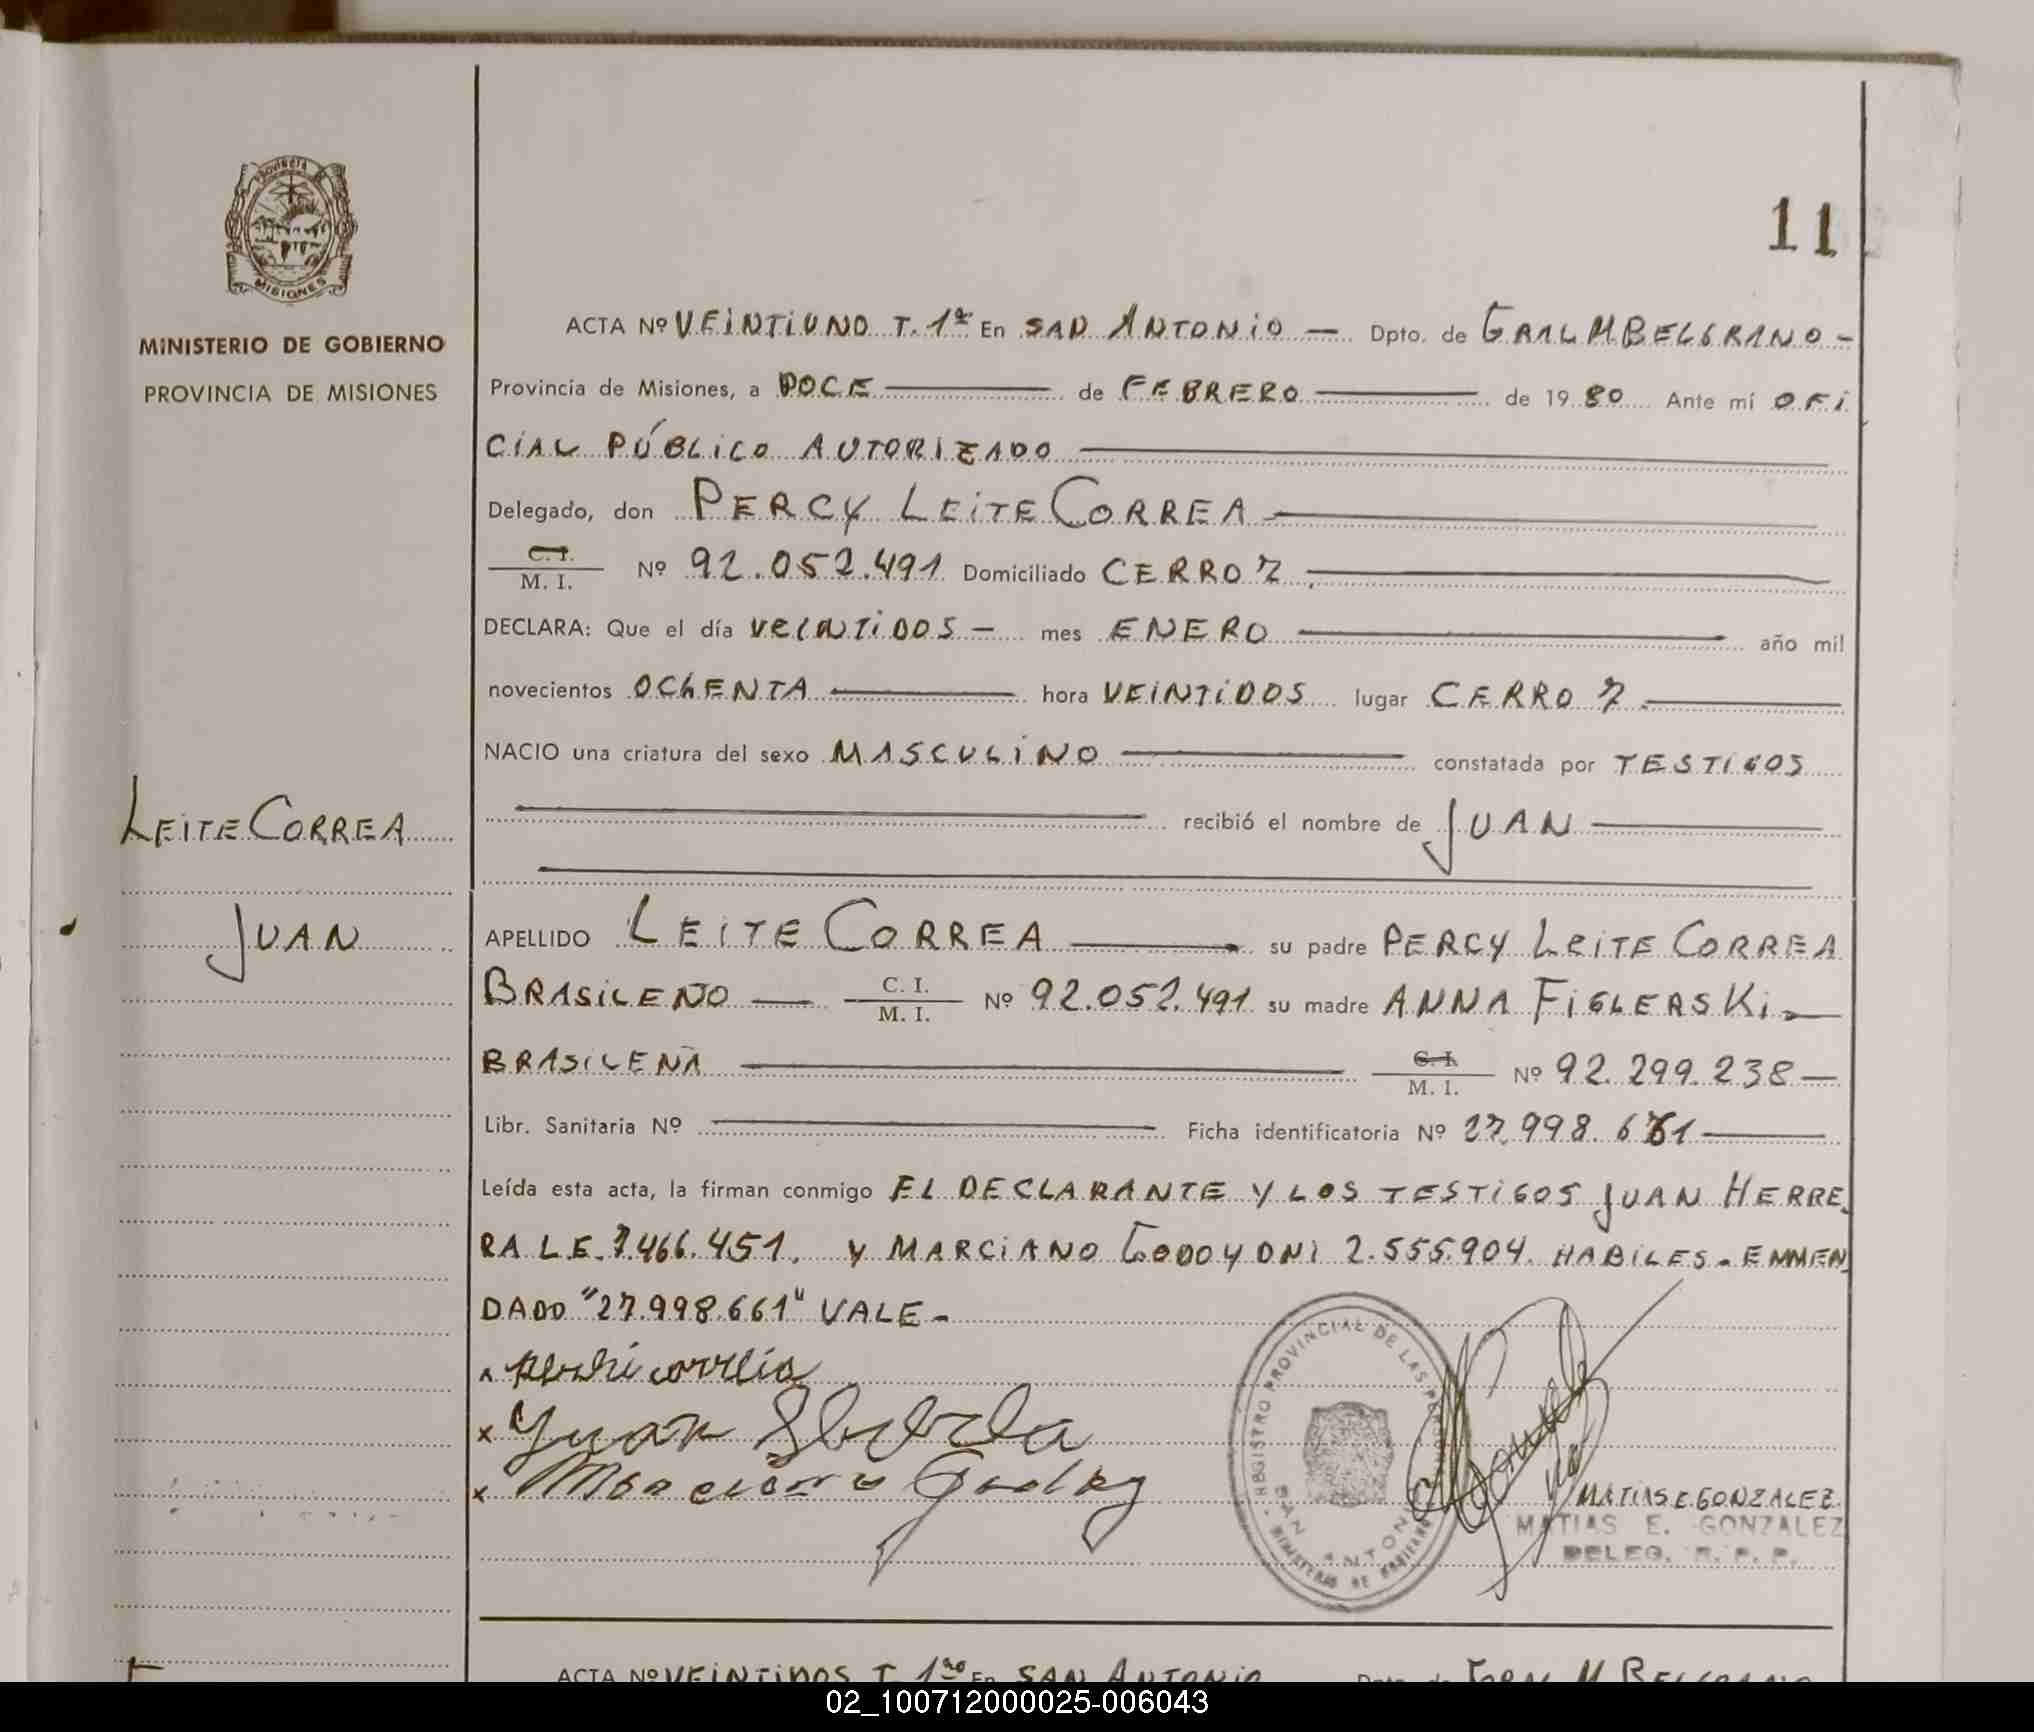 11
PROVINCIA
MISIONES
MINISTERIO DE GOBIERNO
PROVINCIA DE MISIONES
ACTA Nº VEINTIUNO T. 1ª En SAN ANTONIO — Dpto. de GRAL M BELGRANO -
Provincia de Misiones, a DOCE de FEBRERO de 1980 Ante mí OFI
CIAL PÚBLICO AUTORIZADO
Delegado, don PERCY LEITE CORREA
C. I.
M. I. Nº 92.052.491 Domiciliado CERRO 7
DECLARA: Que el día VEINTIDOS — mes ENERO año mil
novecientos OCHENTA hora VEINTIDOS lugar CERRO 7
NACIO una criatura del sexo MASCULINO constatada por TESTIGOS
recibió el nombre de JUAN
LEITE CORREA
JUAN
APELLIDO LEITE CORREA su padre PERCY LEITE CORREA
BRASILEÑO — C. I.
M. I. Nº 92.052.491 su madre ANNA FIGLERSKI
BRASILEÑA C. I.
M. I. Nº 92.299.238 —
Libr. Sanitaria Nº Ficha identificatoria Nº 27.998.661
Leída esta acta, la firman conmigo EL DECLARANTE Y LOS TESTIGOS JUAN HERRE
RA L.E. 7.466.451. Y MARCIANO GODOY DNI 2.555.904. HABILES - ENMEN
DADO "27.998.661" VALE -
x
x Juan
x Marciano Godoy
REGISTRO PROVINCIAL DE LAS PERSONAS
SAN ANTONIO
MINISTERIO DE GOBIERNO
MATIAS E. GONZALEZ
MATIAS E. GONZALEZ
DELEG. R. P. P.
ACTA Nº VEINTIDOS T. 1ro En SAN ANTONIO Dpto. de GRAL M. BELGRANO
02_100712000025-006043